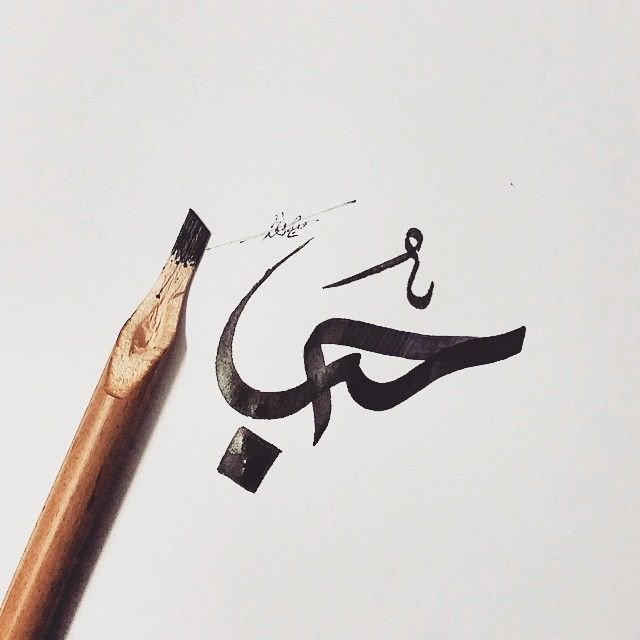 حُب